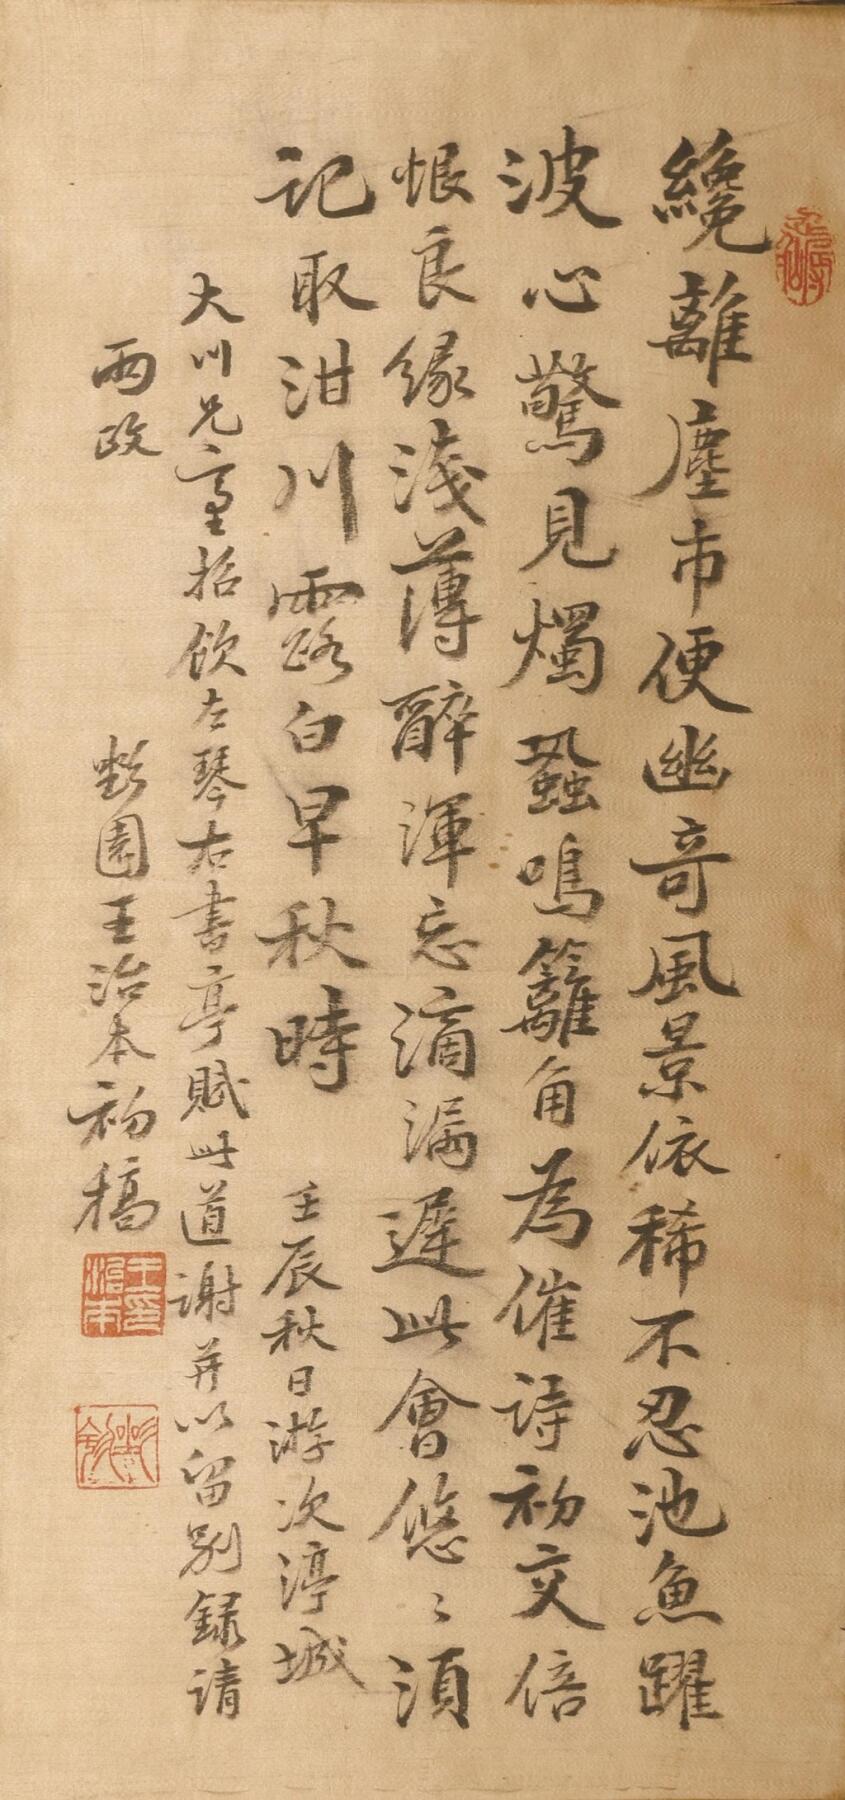 纔離塵市便幽奇風景依稀不忍池魚躍
波心驚見燭蛩鳴籬角為催詩初交倍
恨良緣淺薄醉渾忘滴漏遲此會悠〻須
記取泔川露白早秋時 壬辰秋日游次渟城
大川兄臺招飲左琴右書亭賦此道謝并以留別録請
兩政
園王治本初稿
王治本印